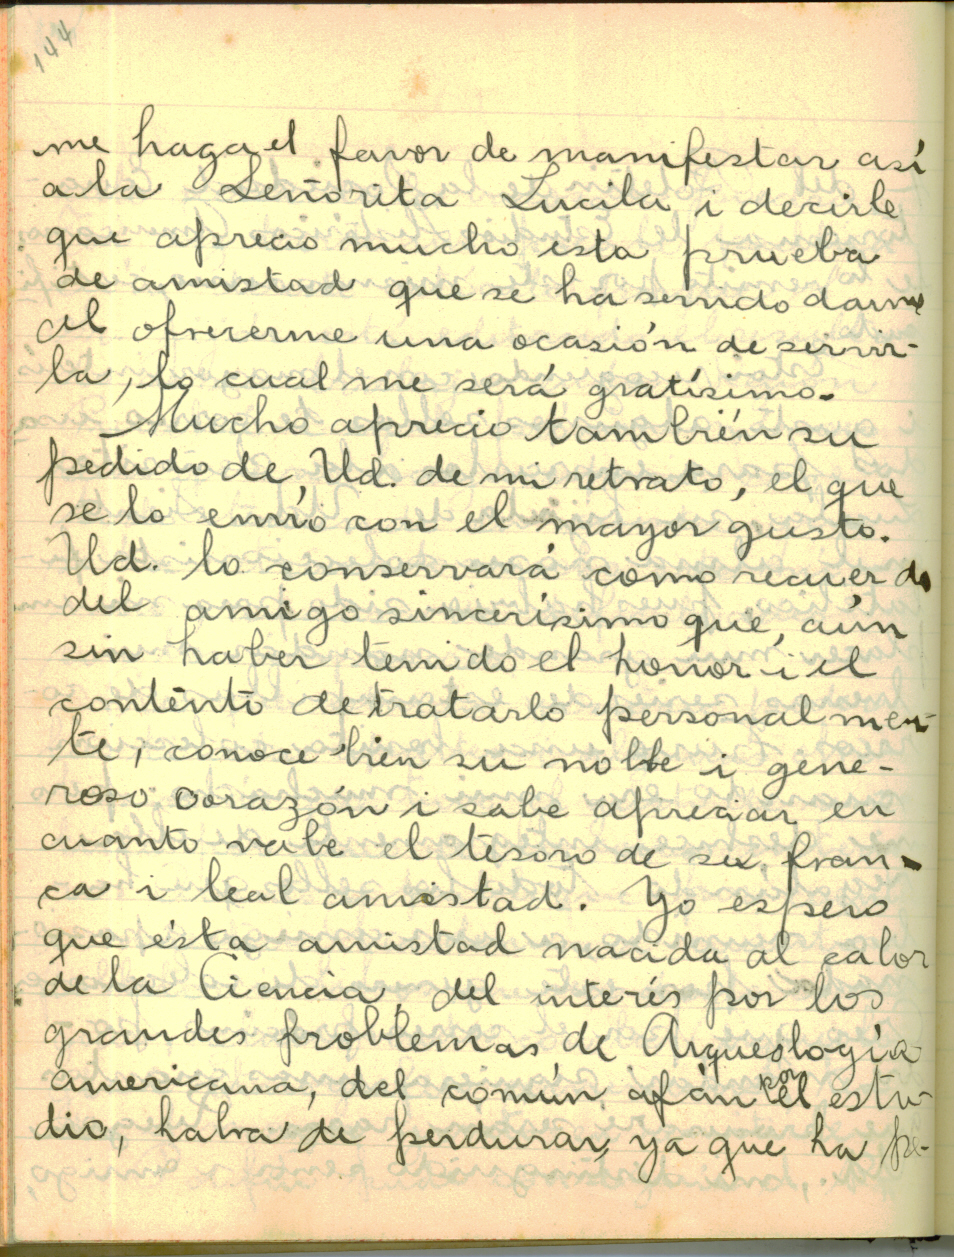 144
me haga el favor de manifestar así
a la Señorita Lucila i decirle
que aprecio mucho esta prueba
de amistad que se ha servido darme
al ofrecerme una ocasión de servir-
la, lo cual me será gratísimo.
Mucho aprecio también su
pedido de Ud. de mi retrato, el que
se lo envío con el mayor gusto.
Ud. lo conservará como recuerdo
del amigo sincerísimo que, aún
sin haber tenido el honor i el
contento de tratarlo personalmen-
te, conoce bien su noble i gene-
roso corazón i sabe apreciar en
cuanto vale el tesoro de su fran-
ca i leal amistad. Yo espero
que ésta amistad nacida al calor
de la Ciencia, del interés por los
grandes problemas de Arqueología
americana, del común afán por el estu-
dio, habra de perdurar, ya que ha pe-